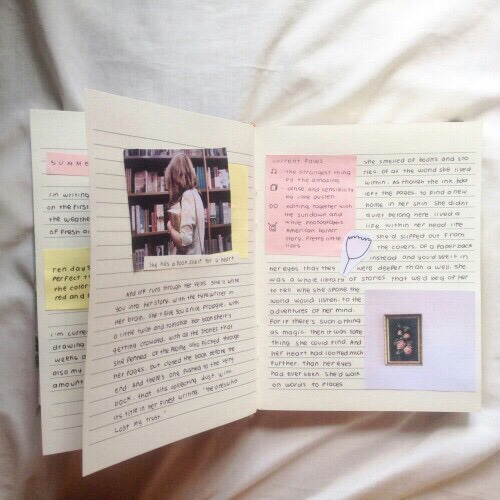 SUMME
I'm writing
on the first
the weathe
of fresh ai
ten days
perfect t
the color
red and b
I'm curre
drawing
weeks a
also my
amount
She has a book shelf for a heart
And ink runs through her veins. She'll write
you into her story with the typewriter in
her brain.
getting crowded, with all the stories that
she penned. of the people who flicked through
her pages but closed the book before the
end. And there's one pushed to the very
back, that sits collecting dust with
its title in her finest writing. "The one's who
lost my trust
current faves
the strangest thing
by the amazing
sense and sensibility
by jane austen
editing together with
the sundown and
white photographs
American horror
story, pretty little
liars
She smelled of books and sto
ries of all the world she lived
within. As though the ink had
left the pages, to find a new
home in her skin. She didn't
quiet belong here lived a
life within her head like
she'd slipped out from
the covers. of a paperback
instead and you'd see it in
her eyes that they were deeper than a well. She
was a whole library of stories. that we'd beg of her
to tell. Why she spoke the
world would listen. to the
adventures of her mind.
For if there's such a thing
as magic. then it was some
thing she could find. And
her heart had loomed much
further. than her eyes
had ever seen. She'd walk
on words to places